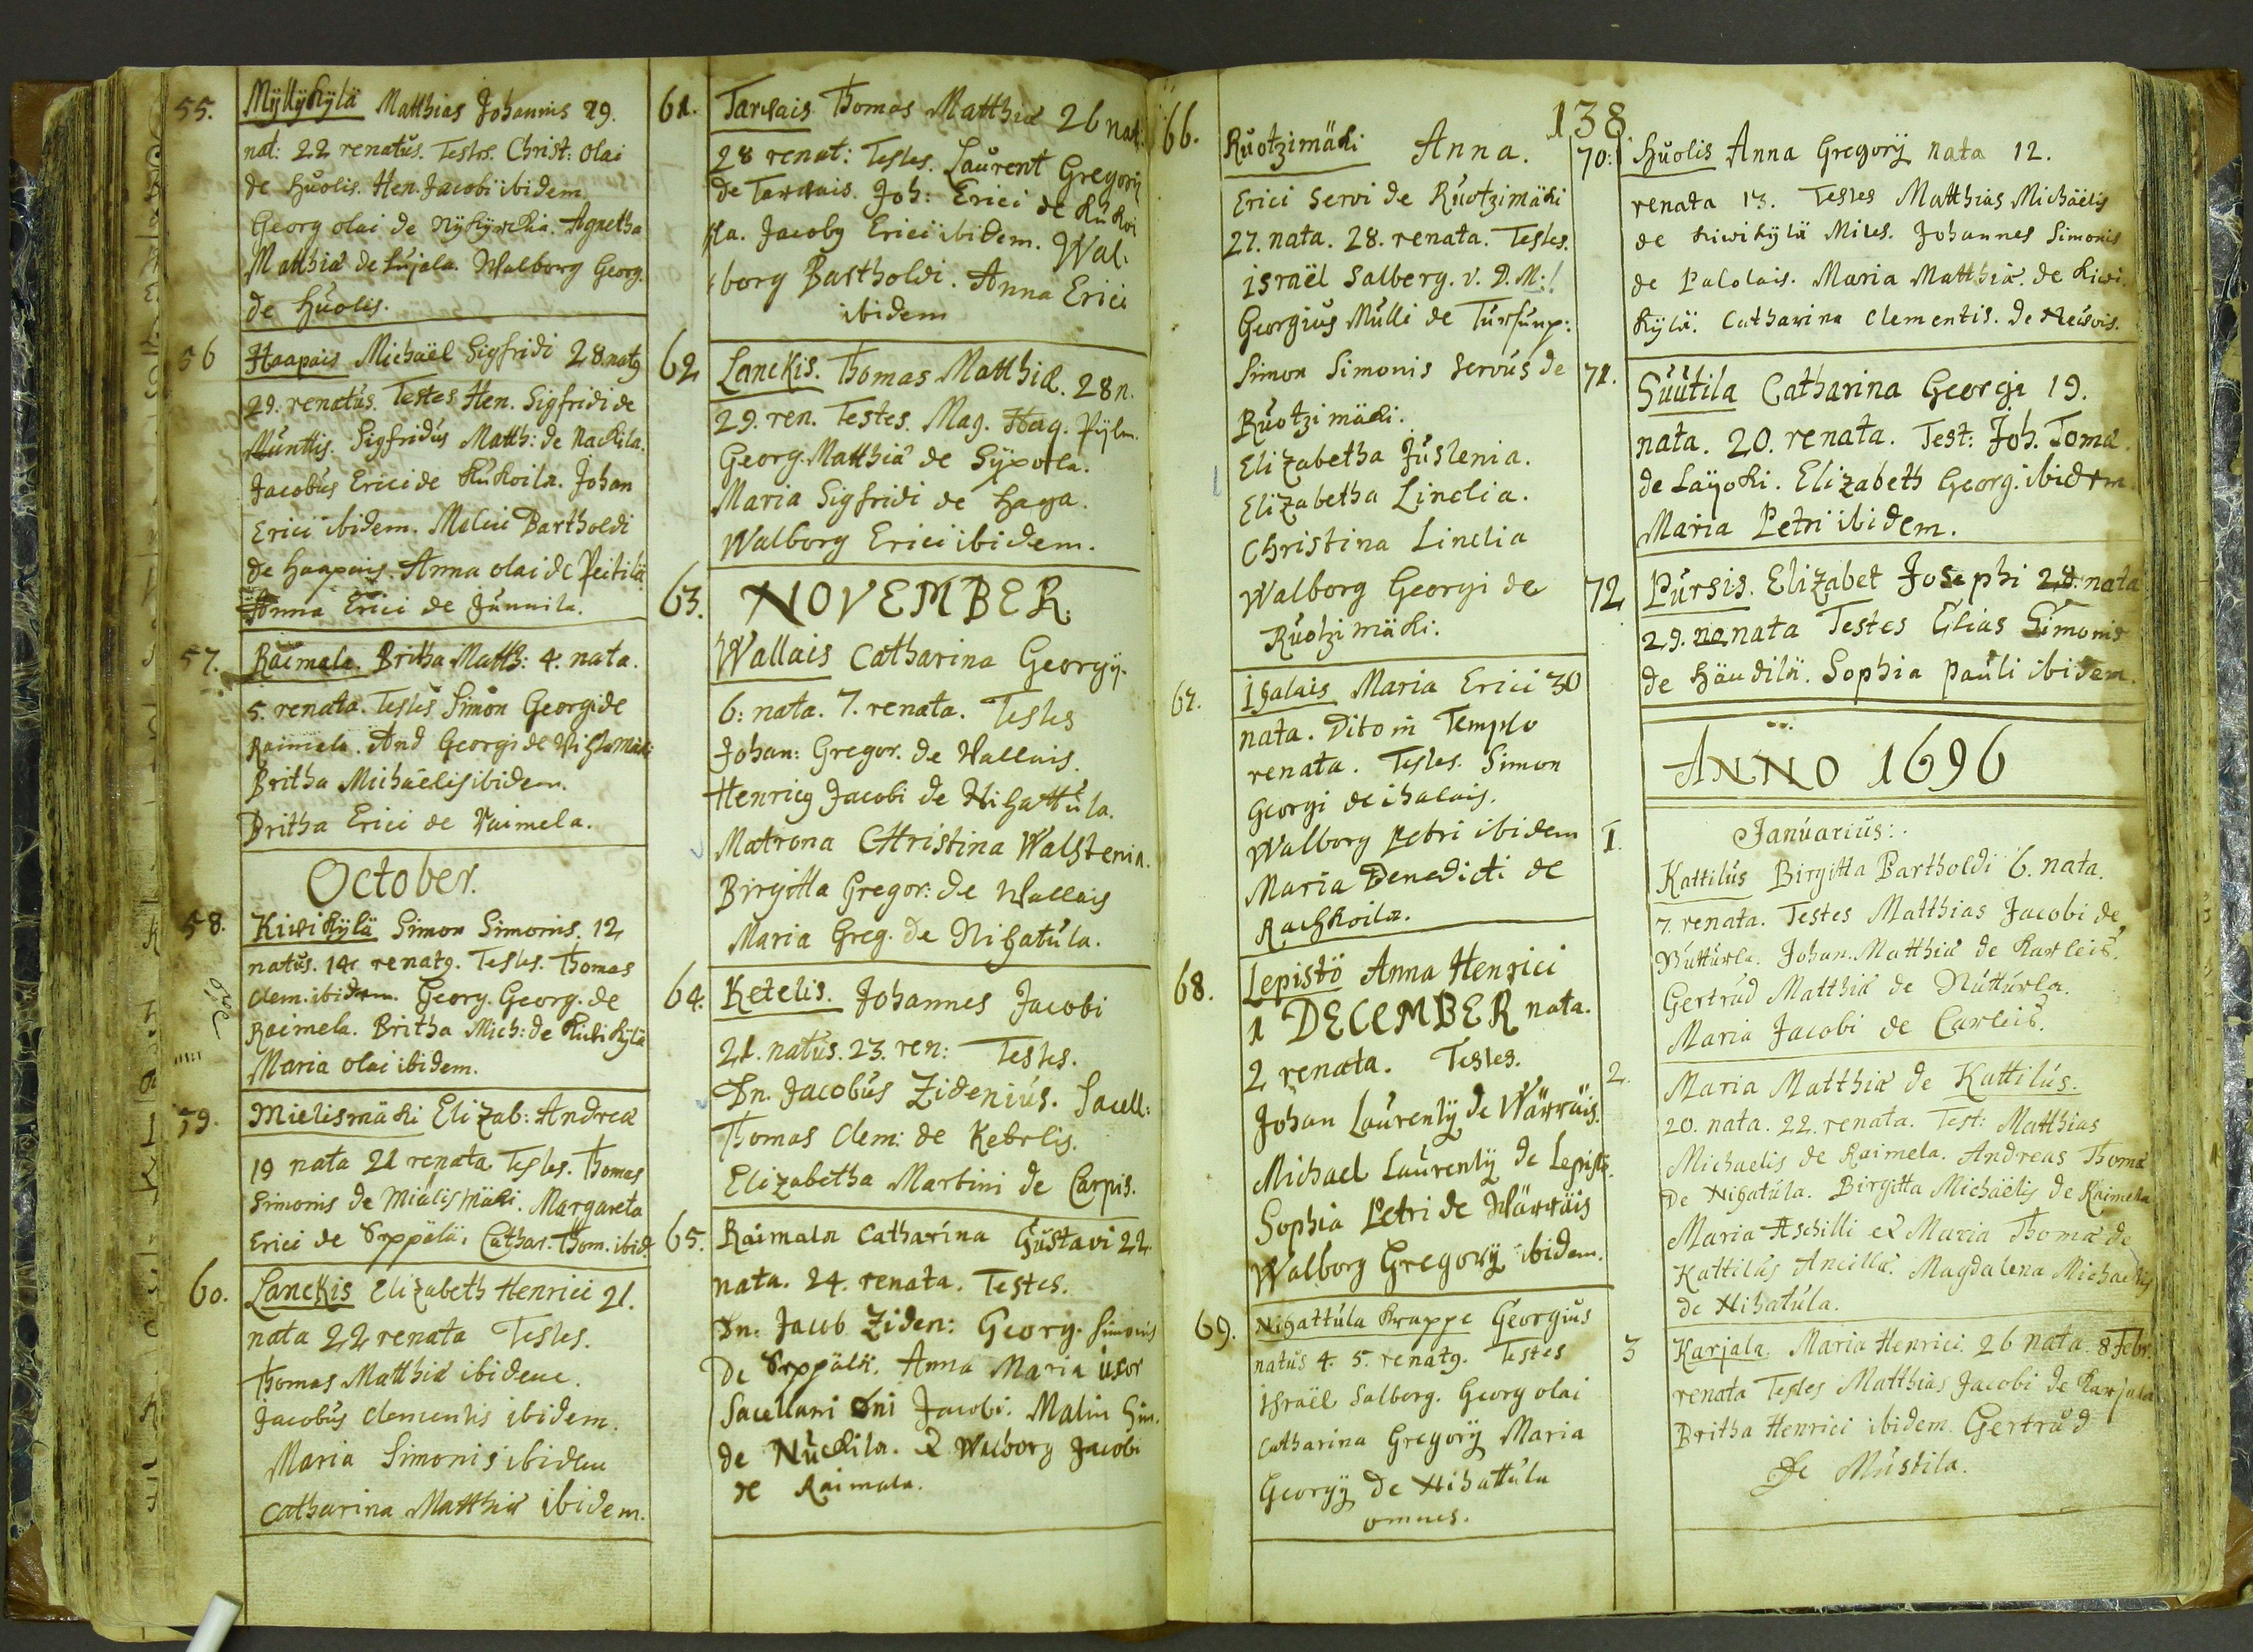 55. Mÿllÿkylä Matthias Johannis 19.
nat: 22 renatus. Testes. Christ: olai
de Huolis. Hen. Jacobi ibidem
Georg olai de Agnetha
Matthiæ de Lujala. Walborg Georg.
de Huolis.
56 Haapais Michaël Sigfridi 28. natg
29. renatus. Testes Hen. Sigfridi de
Sigfridus Matth: de Nackila.
Jacobus Erici de Kukoila. Johan
Erici ibidem. Malin Bartholdi
de Haapais. Anna olai de Peitilä
Anna Erici de Junnila.
57. Raimala. Britha Matth: 4. nata.
5. renata. Testes Simon Georgi de
Raimala. And Georgi de
Britha Michaëlis ibidem.
Britha Erici de Raimela.
October.
58. Kiwikylä Simon Simonis. 12
natus. 14 renatg. Testes. Thomas
Clem. ibidem. Georg. Georg. de
Raimela. Britha Mich: de Kiwikylä
Maria olai ibidem.
59. Mielismäki Elizab: Andreæ
19 nata 21 renata Testes. Thomas
Simonis de Miälismäki. Margareta
Erici de Seppälä. Cathar. Thom. ibid.
60. Lanckis Elizabeth Henrici 21.
nata 22 renata Testes.
Thomas Matthiæ ibidem.
Jacobus Clementis ibidem.
Maria Simonis ibidem
Catharina Matthiæ ibidem.
61. Tarwais Thomas Matthiæ 26 nat.
28 renat: Testes. Laurent Gregorij
de Tarwais. Joh: Erici de Kukoi
la. Jacobg Erici ibidem. Wal-
borg Bartholdi. Anna Erici
ibidem
62 Lanckis. Thomas Matthiæ. 28 n.
29. ren. Testes. Mag. Hag. Pÿlm.
Georg. Matthiæ de
Maria Sigfridi de Haga.
Walborg Erici ibidem.
63. NOVEMBER.
Wallais Catharina Georgij.
6: nata. 7. renata. Testes
Johan: Gregor. de Wallais.
Henricg Jacobi de Nihattula.
Matrona Christina Walstenia.
Birgitta Gregor: de Wallais
Maria Greg. de Nihatula.
64. Ketelis. Johannes Jacobi
21. natus. 23. ren: Testes.
Dn. Jacobus Zidenius. Sacell:
Thomas Clem: de Ketelis.
Elizabetha Martini de Carpis.
65. Raimala Catharina Gustavi 22
nata. 24. renata. Testes.
Dn. Jacob Ziden: Georg. Simonis
De Seppälä. Anna Maria uxor
Sacellani Dni Jacobi. Malin Sim.
de Nuckila. & Walborg Jacobi
de Raimala.
138
66. Ruotzimäki Anna.
Erici Servi de Ruotzimäki
27. nata. 28. renata. Testes.
israël Salberg. v. D. M:
Georgius Mulli de
Simon Simonis Servus de
Ruotzimäki.
Elizabetha Juslenia.
Elizabetha Linelia.
Christina Linelia
Walborg Georgi de
Ruotzimäki.
67. Ihalais Maria Erici 30
nata. Dito in Templo
renata. Testes. Simon
Georgi de ihalais.
Walborg Petri ibidem
Maria Benedicti de
Rachkoila.
68. Lepistö Anna Henrici
1 DECEMBER nata.
2 renata. Testes.
Johan Laurentij de Wärräis.
Michael Laurentij de Lepistö.
Sophia Petri de Wärräis
Walborg Gregorij ibidem.
69. Nihattula Krappe Georgius
natus 4. 5. renatg. Testes
Israël Salberg. Georg olai
Catharina Gregorij Maria
Georgij de Nihattula
omnes.
70: Huolis Anna Gregorij nata 12.
renata 13. Testes Matthias Michäelis
de Kiwikylä Miles. Johannes Simonis
de Palolais. Maria Matthiæ. de Kiwi
kylä. Catharina Clementis. de
71. Suutila Catharina Georgi 19.
nata. 20. renata. Test: Joh. Tomæ.
de Layoki. Elizabeth Georg. ibidem
Maria Petri ibidem.
72 Pursis. Elizabet Josephi 28. nata
29. nata Testes Elias Simonis
de Häudilä. Sophia Pauli ibidem.
ANNO 1696
Januarius:
1. Kattilus Birgitta Bartholdi 6. nata.
7. renata. Testes Matthias Jacobi de
Johan. Matthiæ de Karleis.
Gertrud Matthiæ de Nutturla.
Maria Jacobi de Carleis.
2. Maria Matthiæ de Kattilus.
20. nata. 22. renata. Test: Matthias
Michaelis de Raimela. Andreas Thomæ
De Nihatula. Birgitta Michäelis de Raimela
Maria Aschilli & Maria Thomæ de
Kattilus Ancillæ. Magdalena Michaelis
de Nihatula.
3 Karjala. Maria Henrici. 26 nata. 8 Febr.
renata Testes Matthias Jacobi de Karjala
Britha Henrici ibidem. Gertrud
De Mustila.